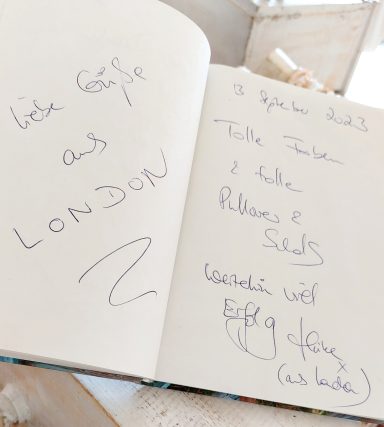 Liebe Grüße
aus
LONDON
13 September 2023
Tolle Farben
& tolle
Pullover &
Schals
weiterhin viel
Erfolg
x
(aus London)